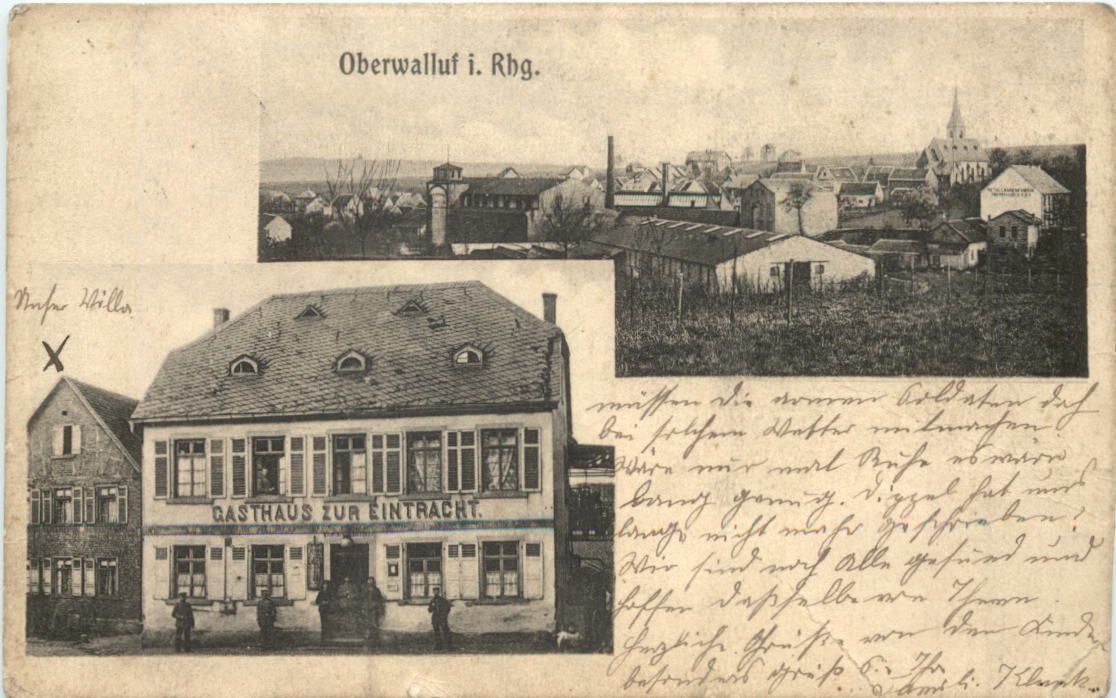 Oberwalluf i. Rhg.
Unser Villa
GASTHAUS ZUR EINTRACHT.
müssen die armen Soldaten doch
bei solchem Wetter mitmachen
Wäre nur mal Ruhe es wäre
lang genug. Dippel hat uns
lange nicht mehr geschrieben?
Wir sind noch Alle gesund und
hoffen dasselbe von Ihnen
Herzliche Grüße von den Kinder
besonders grüßt Sie Ihr